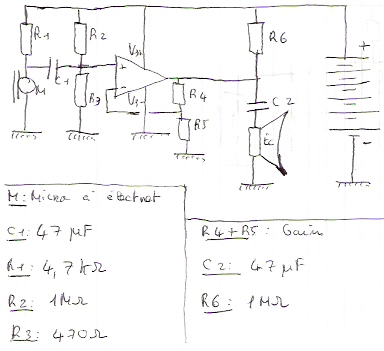 R1
R2
R6
+
C1
M
R3
+
-
R4
R5
C2
-
M: Micro à électret
C1: 47 µF
R1: 4,7 kΩ
R2: 1MΩ
R3: 470Ω
R4+R5: Gain
C2: 47 µF
R6: 1MΩ